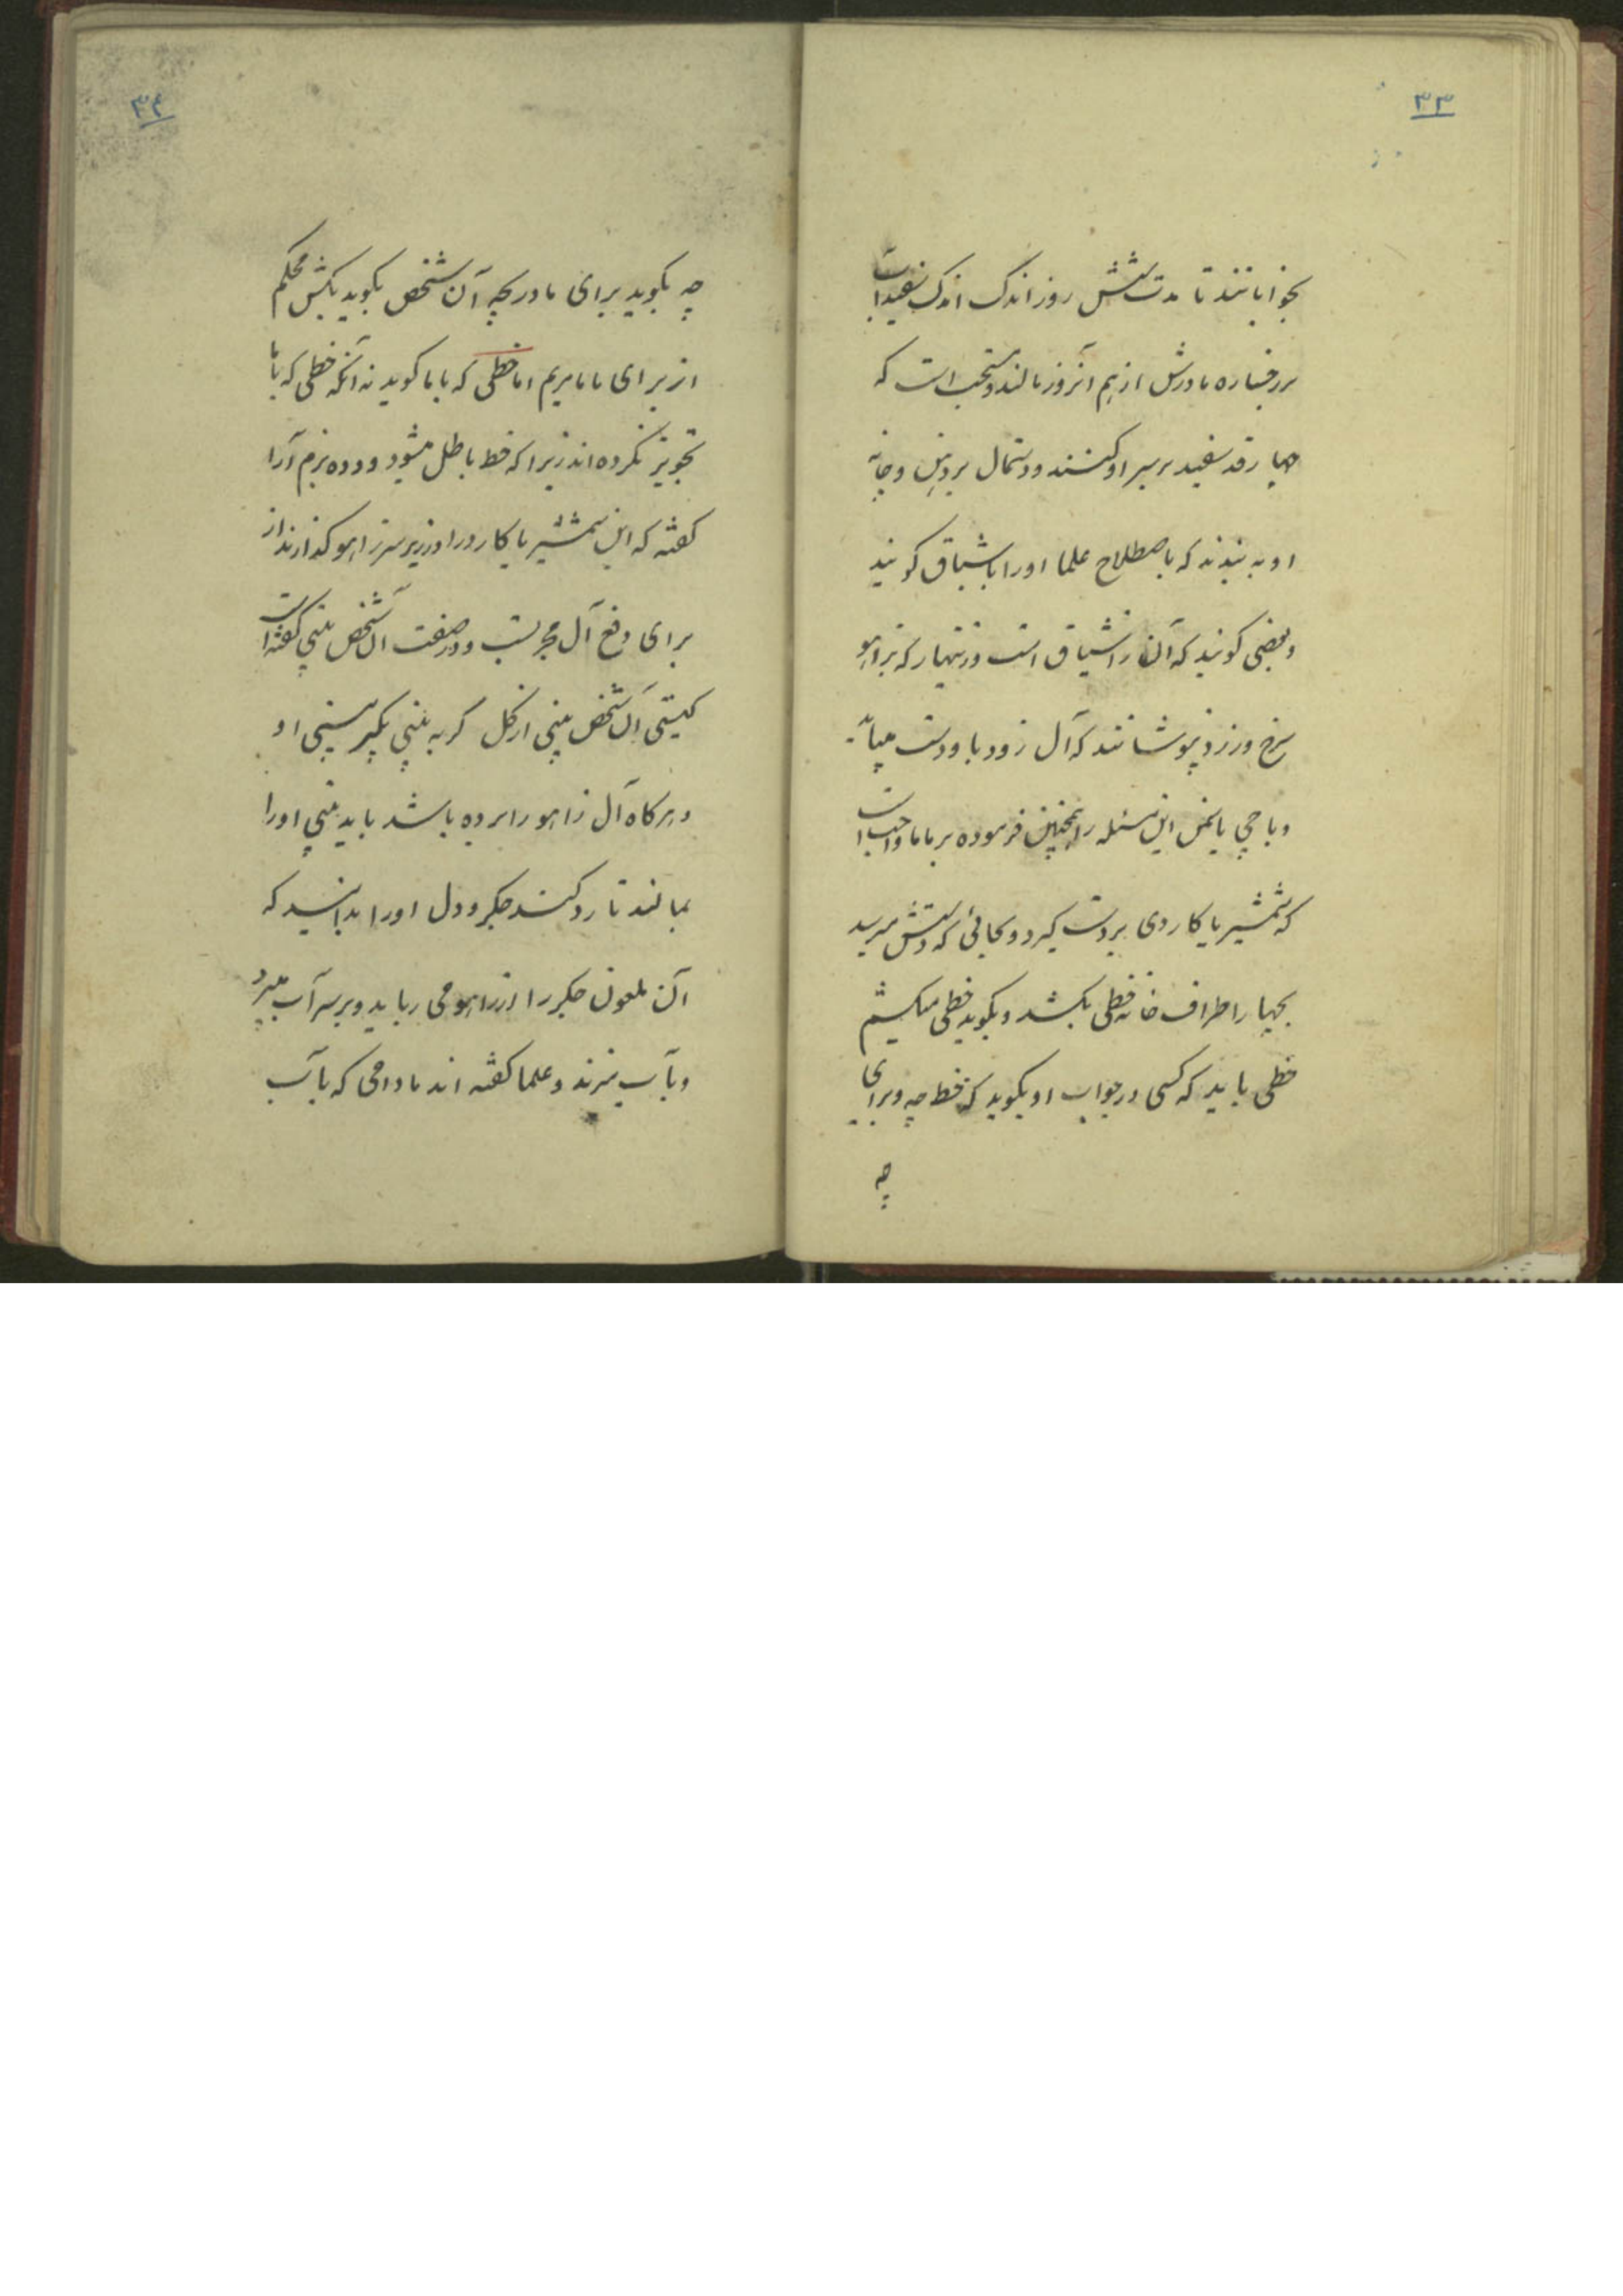 ۳۳
بخوابانند تا مدت شش روز اندک اندک سفیداب
بر رخساره مادرش از دهم آنروز مالند و مستحب است که
چهارقد سفید بر سر او کنند و دستمال بر دهن و چانه
او به بندند که باصطلاح علما او را باشباق گویند
و بعضی گویند که آن اشیاق است و زینهار که بزاهو
سرخ و زرد نپوشانند که آل زود باو دست میابد
و باجی یاسمن این مسئله را همچنین فرموده بر ماما واجب است
که شمشیر یا کاردی بر دست گیرد و بجائی که دستش میرسد
بچهار اطراف خانه خطی بکشد و بگوید خطی میکشم
خطی باید که کسی در جواب او بگوید که خط چه و برای
چه
۳۴
چه بگوید برای مادر بچه آن شخص بگوید بکش محکم
از برای ماما مریم اما خطی که با ما گوید نه آنکه خطی که با ما
تجویز نکرده اند زیرا که خط باطل میشود و دده بزم آرا
گفته که این شمشیر یا کارد را در زیر سر زاهو گذارند از
برای دفع آل مجربست و در صفت آن شخص بینی گفته است
کیستی آن شخص بینی از گل گر به بینی بگیر بینی او
و هرگاه آل زاهو را برده باشد باید بینی او را
بمالند تا رد کند جگر و دل او را بدانید که
آن ملعون جگر را از زاهو می رباید و بر سر آب میبرد
و بآب میزند و علما گفته اند مادامی که بآب